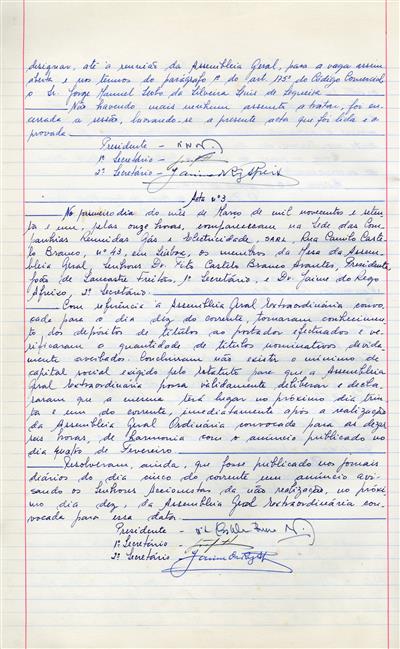 designar, até à reunião da Assembleia Geral, para a vaga assim
aberta e nos termos do parágrafo 1º do art. 175º do Código Comercial
o Sr. Jorge Manuel Leão da Silveira Luís de Sequeira
Não havendo mais nenhum assunto a tratar, foi en-
cerrada a sessão, lavrando-se a presente acta que foi lida e a-
provada
Presidente -
1º Secretário -
2º Secretário -
Acta nº 3
No primeiro dia do mês de Março de mil novecentos e seten-
ta e um, pelas onze horas, compareceram na Sede das Com-
panhias Reunidas Gás e Electricidade, SARL, Rua Camilo Caste-
lo Branco, nº 43, em Lisboa, os membros da Mesa da Assem-
bleia Geral, Senhores Dr. Castelo Branco Arantes, Presidente,
João de Lancastre Freitas, 1º Secretário, e Dr. Jaime do Rego
Afreixo, 2º Secretário.
Com referência à Assembleia Geral Extraordinária convo-
cada para o dia dez do corrente, tomaram conhecimen-
to dos depósitos de títulos ao portador efectuados e ve-
rificaram a quantidade de títulos nominativos devida-
mente averbados. Concluiram não existir o mínimo de
capital social exigido pelo Estatuto para que a Assembleia
Geral Extraordinária possa validamente deliberar e decla-
raram que a mesma terá lugar no próximo dia trin-
ta e um do corrente, imediatamente após a realização
da Assembleia Geral Ordinária convocada para as dezas-
seis horas, de harmonia com o anúncio publicado no
dia quatro de Fevereiro.
Resolveram, ainda, que fosse publicado nos jornais
diários do dia cinco do corrente um anúncio avi-
sando os Senhores Accionistas da não realização, no próxi-
mo dia dez, da Assembleia Geral Extraordinária con-
vocada para essa data.
Presidente -
1º Secretário -
2º Secretário -